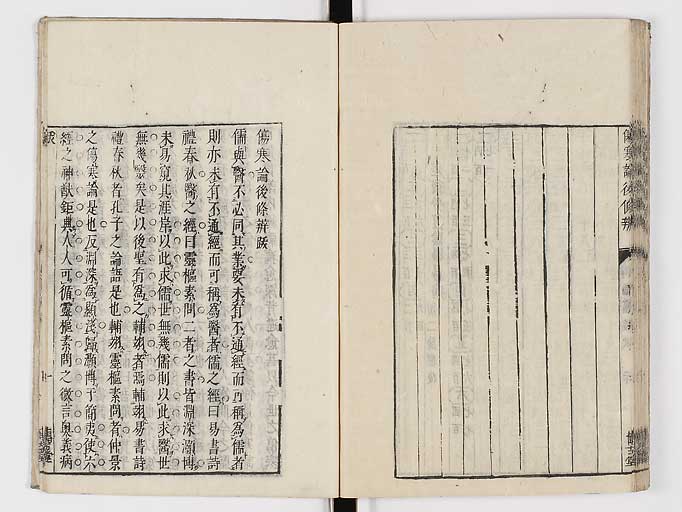 傷寒論後條辨跋
儒與醫不必同其業要未有不通經而可稱為儒者
則亦未有不通經而可稱為醫者儒之經曰易書詩
禮春秋醫之經曰靈樞素問二者之書皆淵深灝博
未易窺其涯岸以此求儒世無幾儒則以此求醫世
無幾醫矣是以後聖有為之輔翊者焉輔翊易書詩
禮春秋者孔子之論語是也輔翊靈樞素問者仲景
之傷寒論是也反淵深為顯淺歸灝博于簡夷使六
經之神猷鉅典人人可循靈樞素問之微言奧義病
跋
傷寒論後條辨